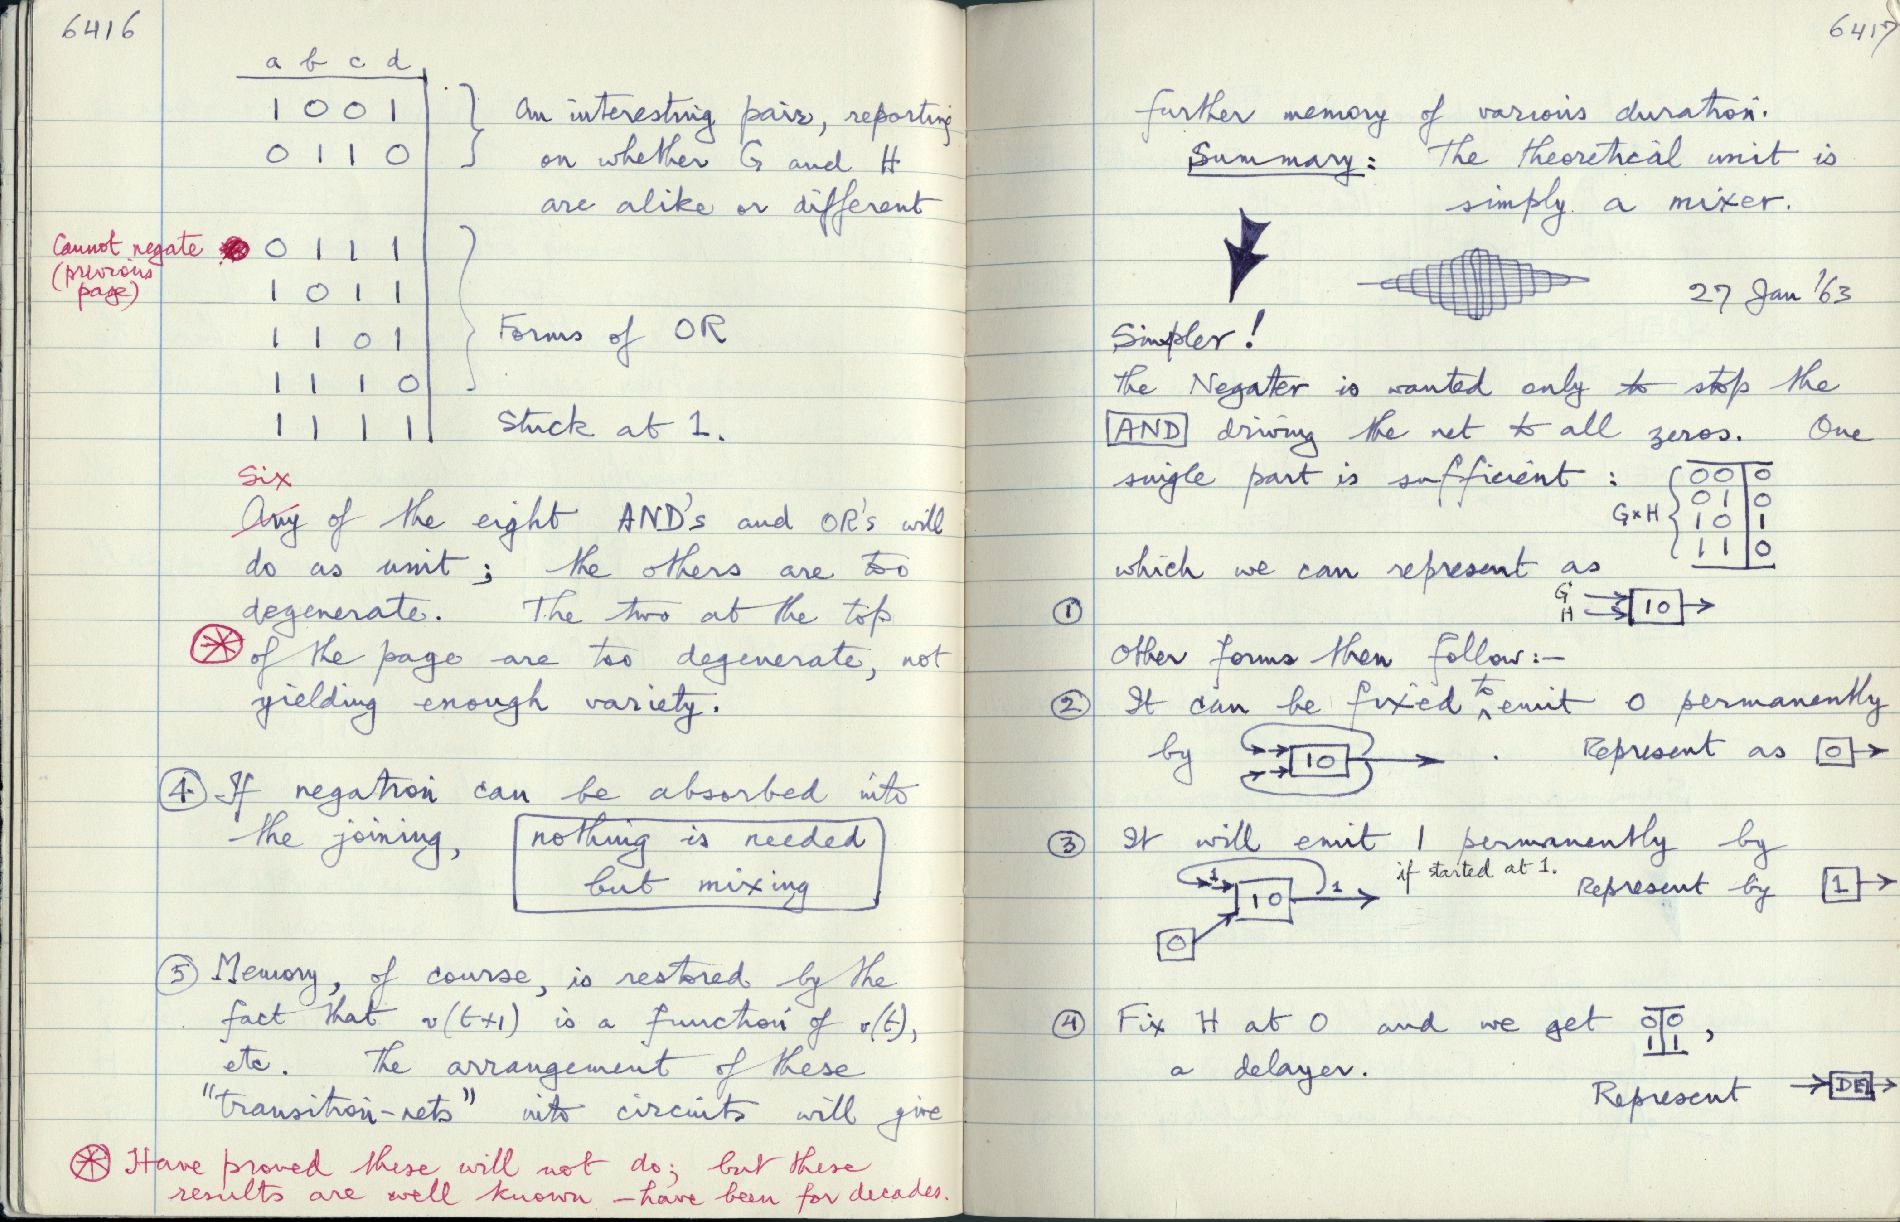 6416
a b c d
1 0 0 1
0 1 1 0
An interesting pair, reporting
on whether G and H
are alike or different
Cannot negate
(previous
page)
0 1 1 1
1 0 1 1
1 1 0 1
1 1 1 0
Forms of OR
1 1 1 1
Stuck at 1.
Six
Any of the eight AND's and OR's will
do as unit; the others are too
degenerate. The two at the top
of the page are too degenerate, not
yielding enough variety.
④ If negation can be absorbed into
the joining, nothing is needed
but mixing
⑤ Memory, of course, is restored by the
fact that v(t+1) is a function of v(t),
etc. The arrangement of these
"transition-nets" into circuits will give
⊛ Have proved these will not do; but these
results are well known – have been for decades.
6417
further memory of various duration.
Summary: The theoretical unit is
simply a mixer.
27 Jan '63
Simpler!
The Negater is wanted only to stop the
AND driving the net to all zeros. One
single part is sufficient :
G×H
0 0 0
0 1 0
1 0 1
1 1 0
which we can represent as
① G
H 10
Other forms then follow:–
② It can be fixed to emit 0 permanently
by 10 . Represent as 0
③ It will emit 1 permanently by
if started at 1.
1 10 1 Represent by 1
0
④ Fix H at 0 and we get 0 0
1 1 ,
a delayer.
Represent DEL